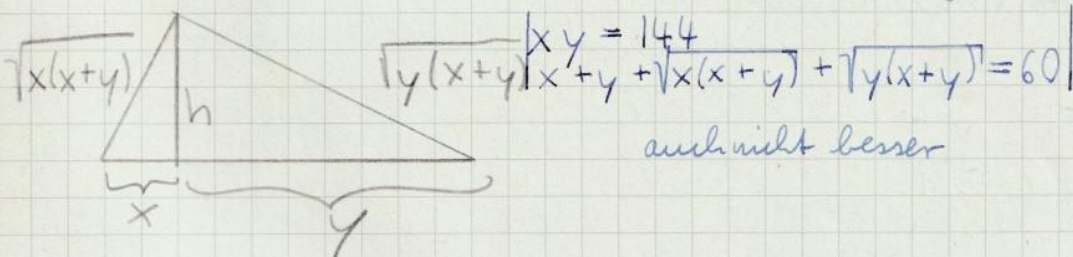 √x(x+y)
h
x
y
√y(x+y)
|xy = 144
|x+y+√x(x+y) + √y(x+y) = 60|
auch nicht besser